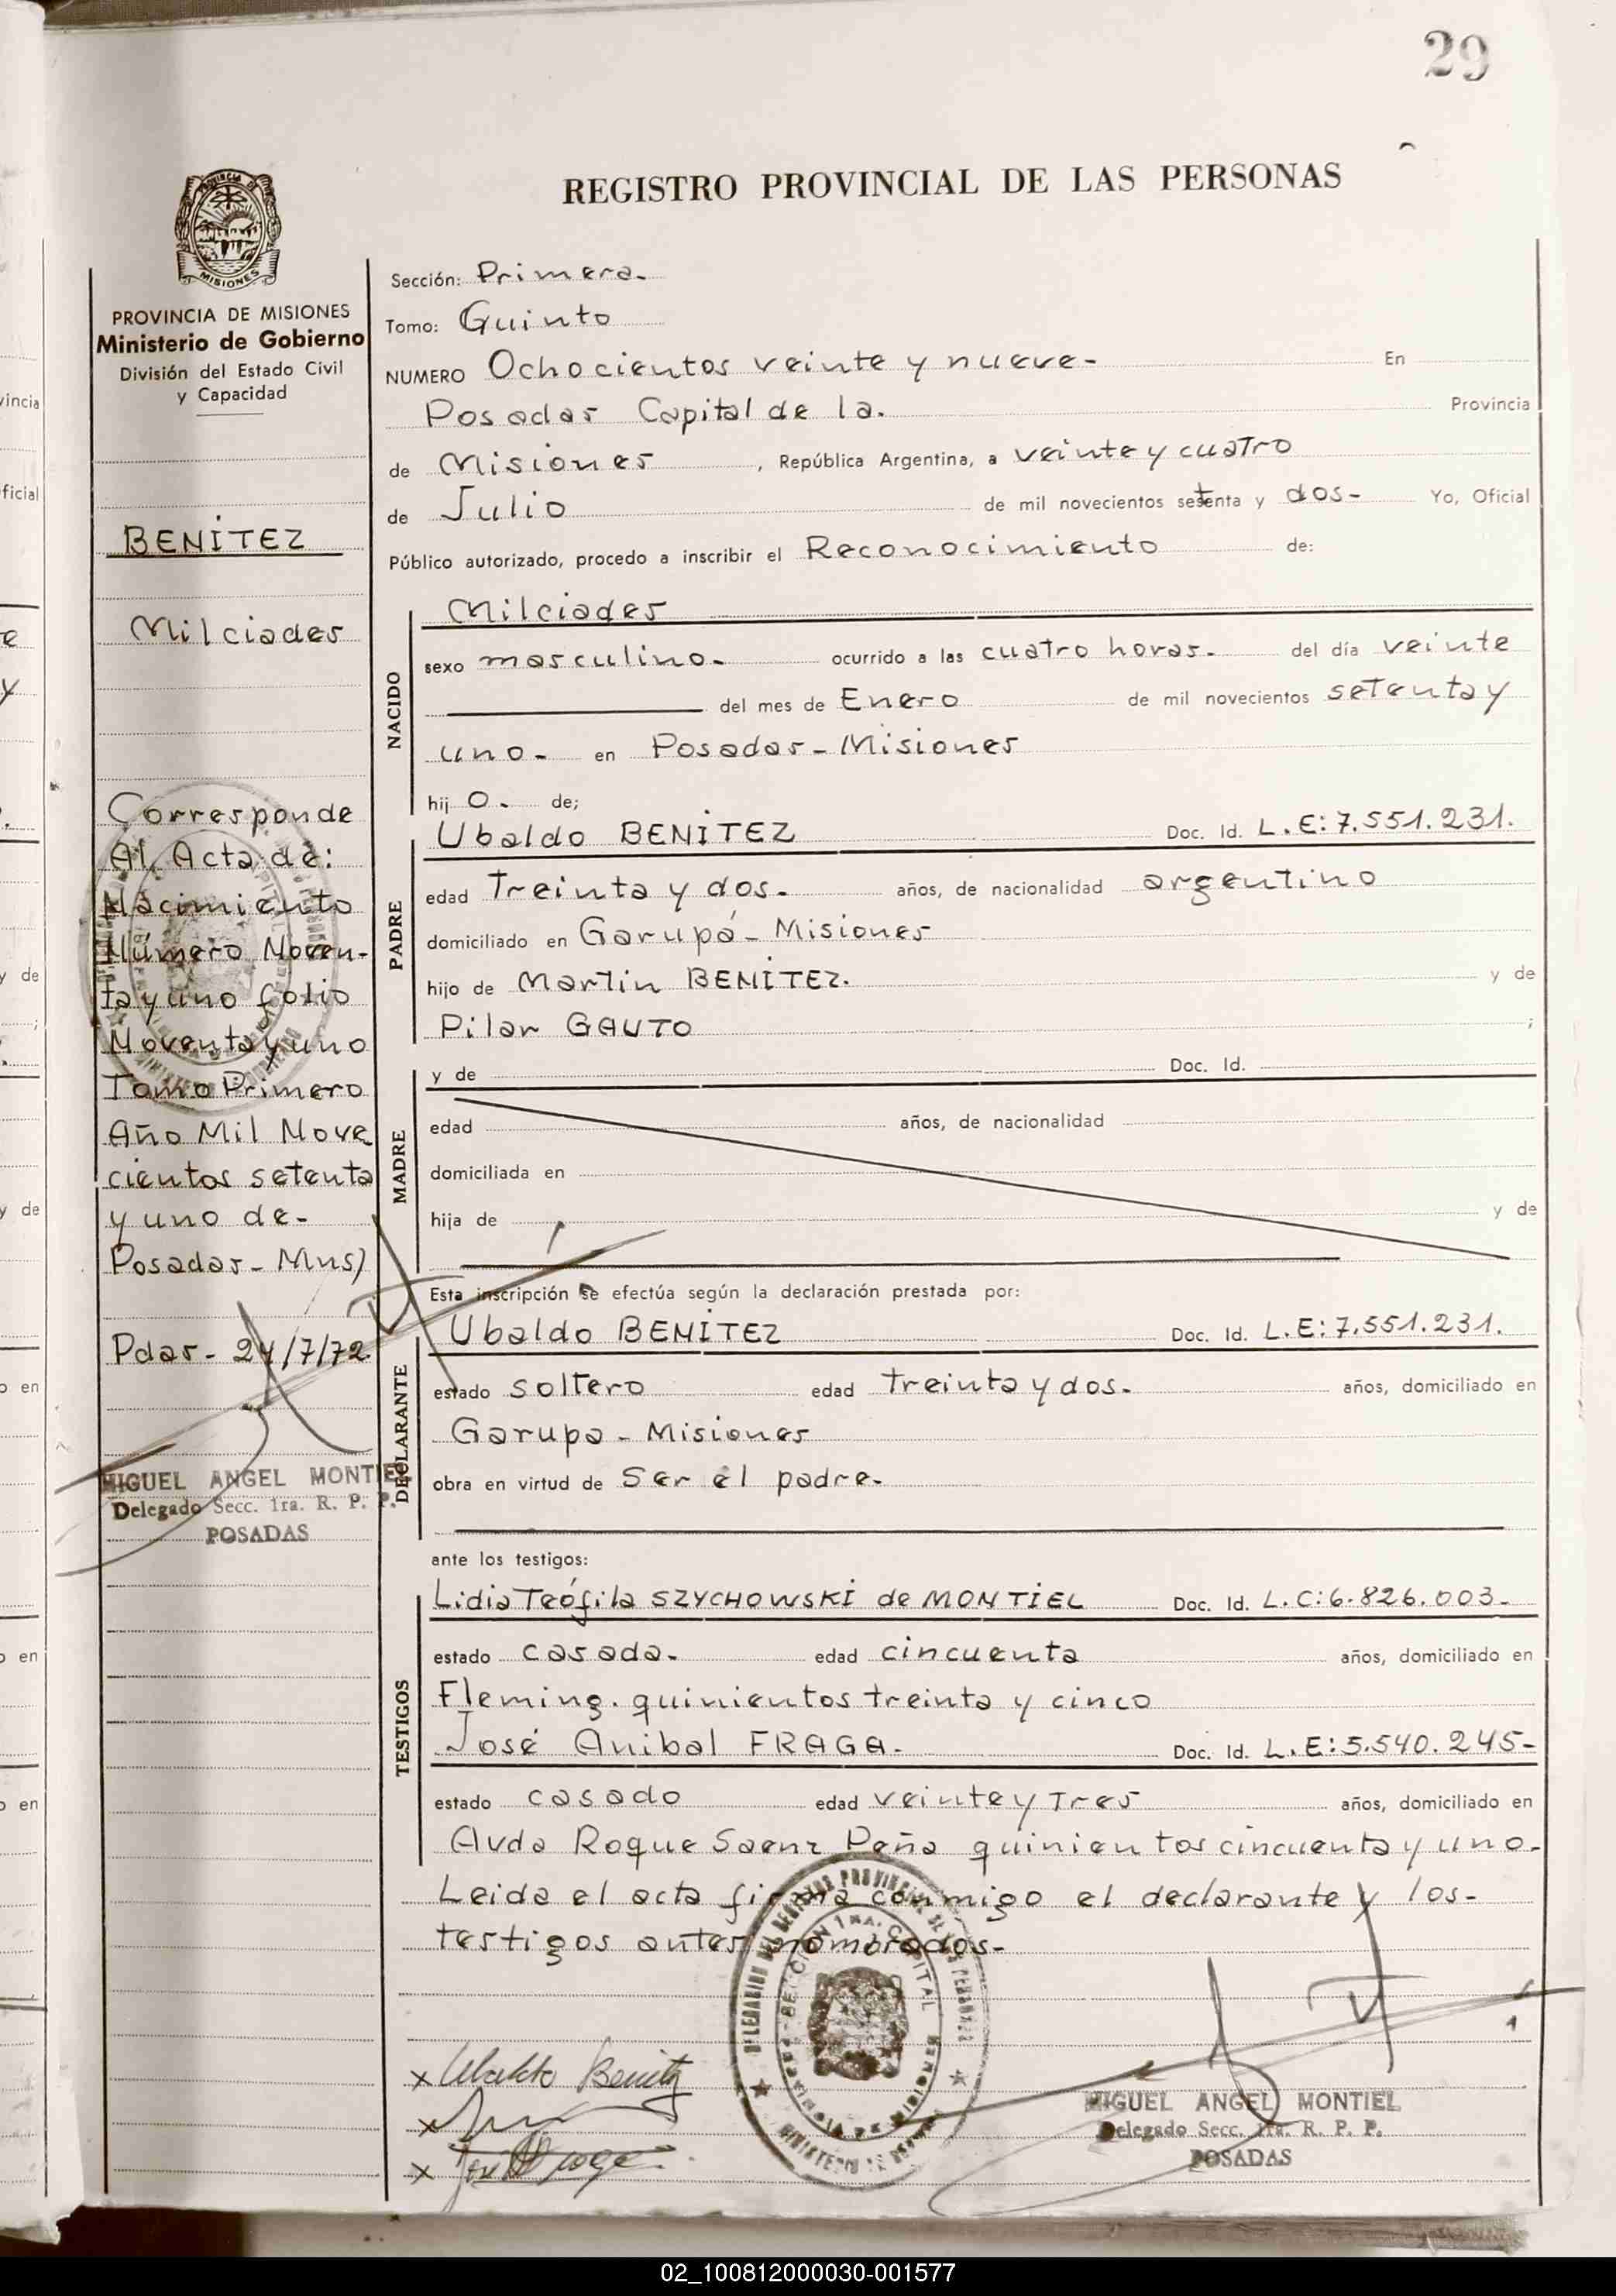 29
REGISTRO PROVINCIAL DE LAS PERSONAS
MISIONES
PROVINCIA DE MISIONES
Ministerio de Gobierno
División del Estado Civil
y Capacidad
BENíTEZ
Milciades
Corresponde
Al Acta de:
Nacimiento
Número Noven-
ta y uno folio
Noventa y uno
Tomo Primero
Año Mil Nove
cientos setenta
y uno de-
Posadas- Mns)
Pdas- 24/7/72
MIGUEL ANGEL MONTIEL
Delegado Secc. 1ra. R. P. P.
POSADAS
Sección: Primera-
Tomo: Quinto
NUMERO Ochocientos veinte y nueve- En
Posadas Capital de la. Provincia
de Misiones , República Argentina, a veinte y cuatro
de Julio de mil novecientos setenta y dos- Yo, Oficial
Público autorizado, procedo a inscribir el Reconocimiento de:
NACIDO
Milciades
sexo masculino- ocurrido a las cuatro horas- del día veinte
del mes de Enero de mil novecientos setenta y
uno- en Posadas-Misiones
hij o. de;
PADRE
Ubaldo BENíTEZ Doc. Id. L.E:7.551.231.
edad Treinta y dos- años, de nacionalidad argentino
domiciliado en Garupá- Misiones
hijo de Martin BENíTEZ. y de
Pilar GAUTO ;
MADRE
y de Doc. Id.
edad años, de nacionalidad
domiciliada en
hija de y de
Esta inscripción se efectúa según la declaración prestada por:
DECLARANTE
Ubaldo BENíTEZ Doc. Id. L.E:7.551.231.
estado soltero edad Treinta y dos- años, domiciliado en
Garupa- Misiones
obra en virtud de Ser el padre-
ante los testigos:
TESTIGOS
Lidia Teófila SZYCHOWSKi de MONTiEL Doc. Id. L.C:6.826.003-
estado casada- edad cincuenta años, domiciliado en
Fleming. quinientos treinta y cinco
José Anibal FRAGA- Doc. Id. L.E:5.540.245-
estado casado edad veinte y Tres años, domiciliado en
Avda Roque Saenz Peña quinientos cincuenta y uno-
Leida el acta firma conmigo el declarante y los-
testigos antes nombrados-
x Ubaldo Benitez
x
x
SECCION 1RA. CAPITAL
MIGUEL ANGEL MONTIEL
Delegado Secc. 1ra. R. P. P.
POSADAS
02_100812000030-001577